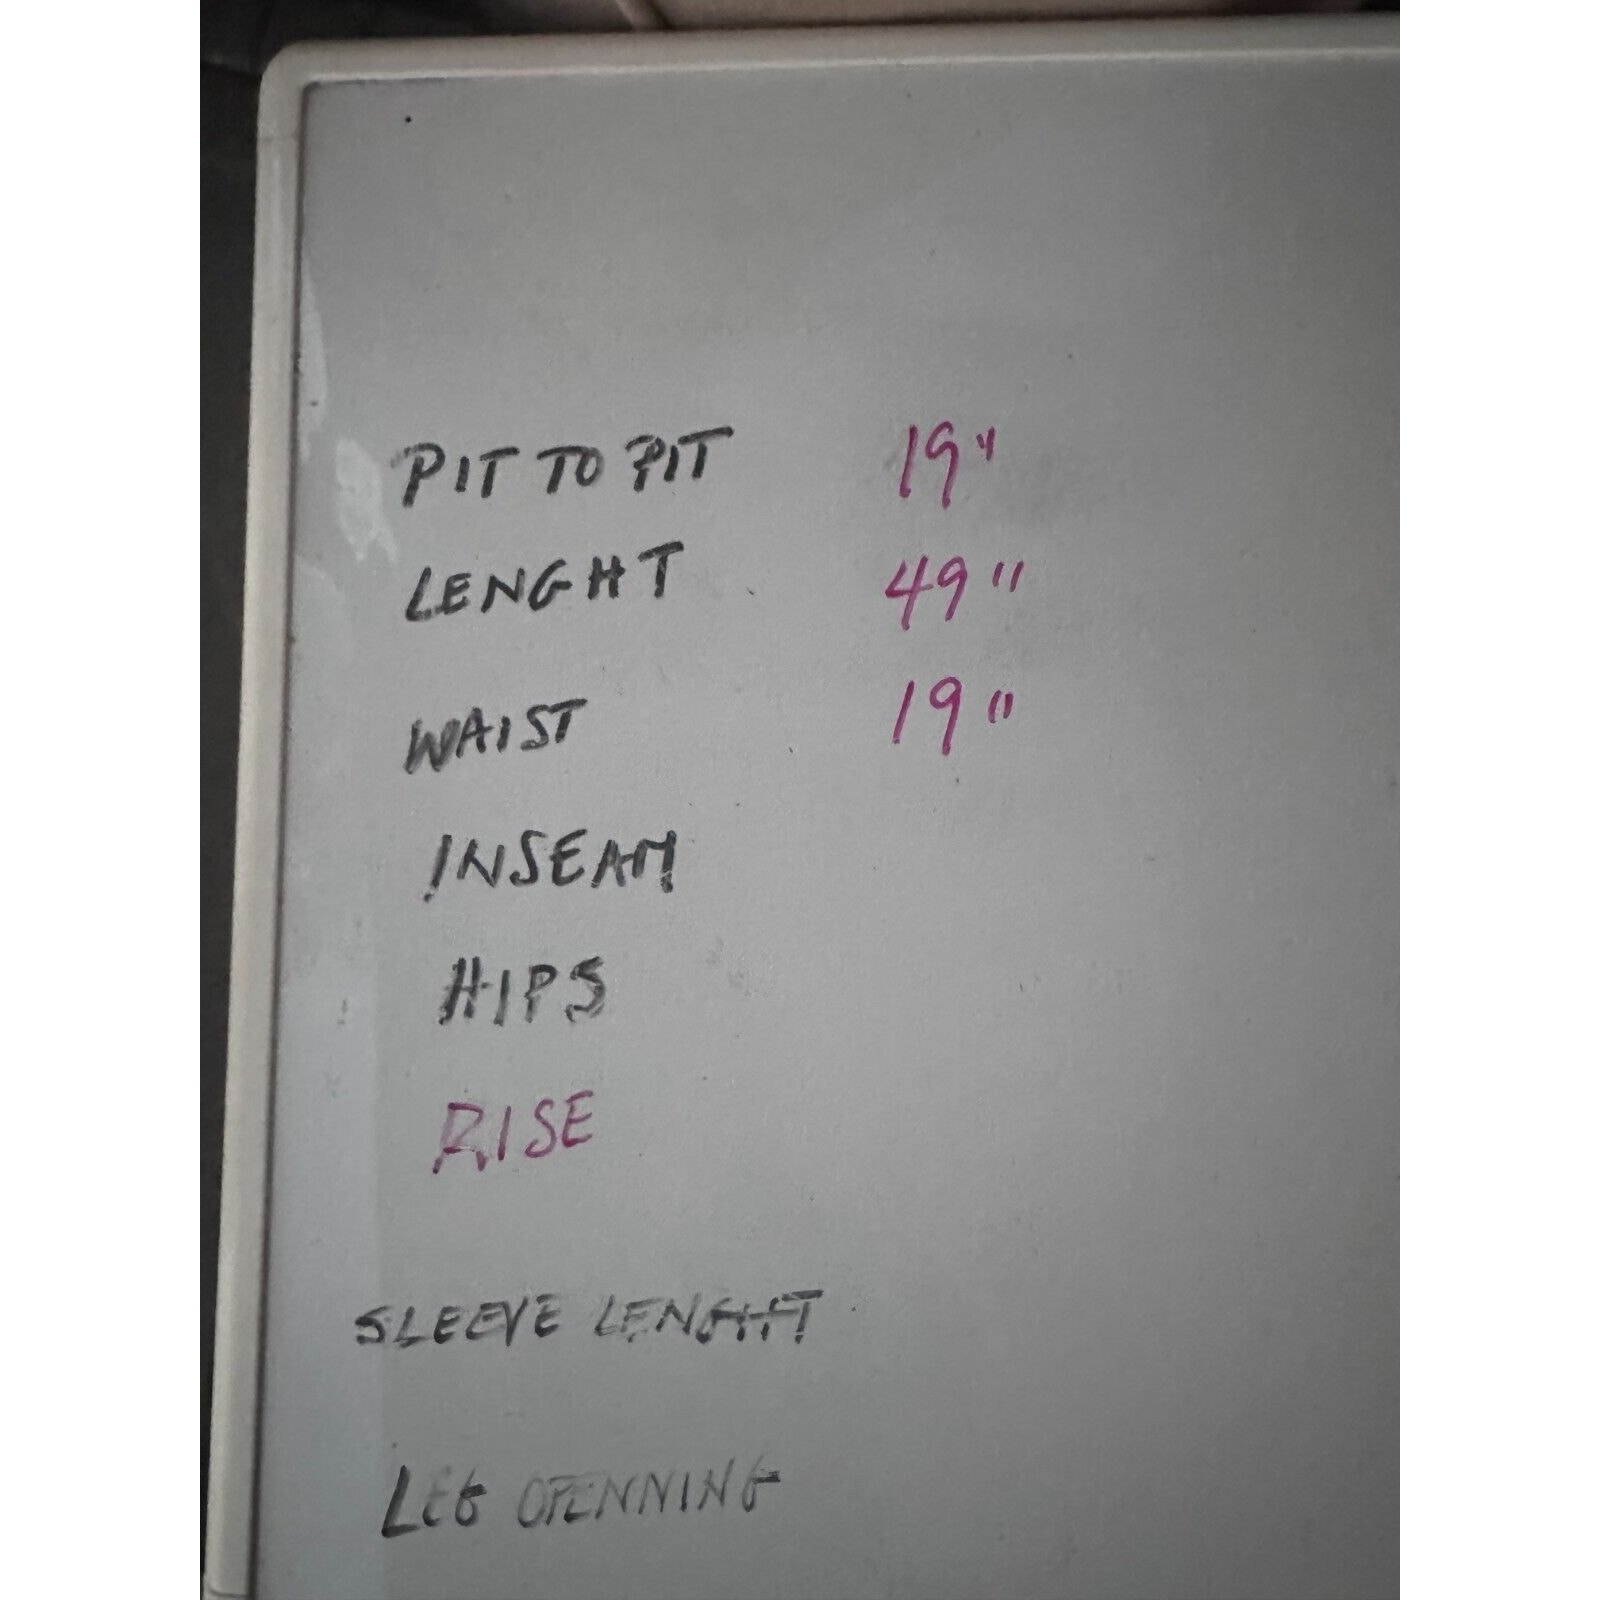 PIT TO PIT 19"
LENGHT 49"
WAIST 19"
INSEAM
HIPS
RISE
SLEEVE LENGHT
LEG OPENNING